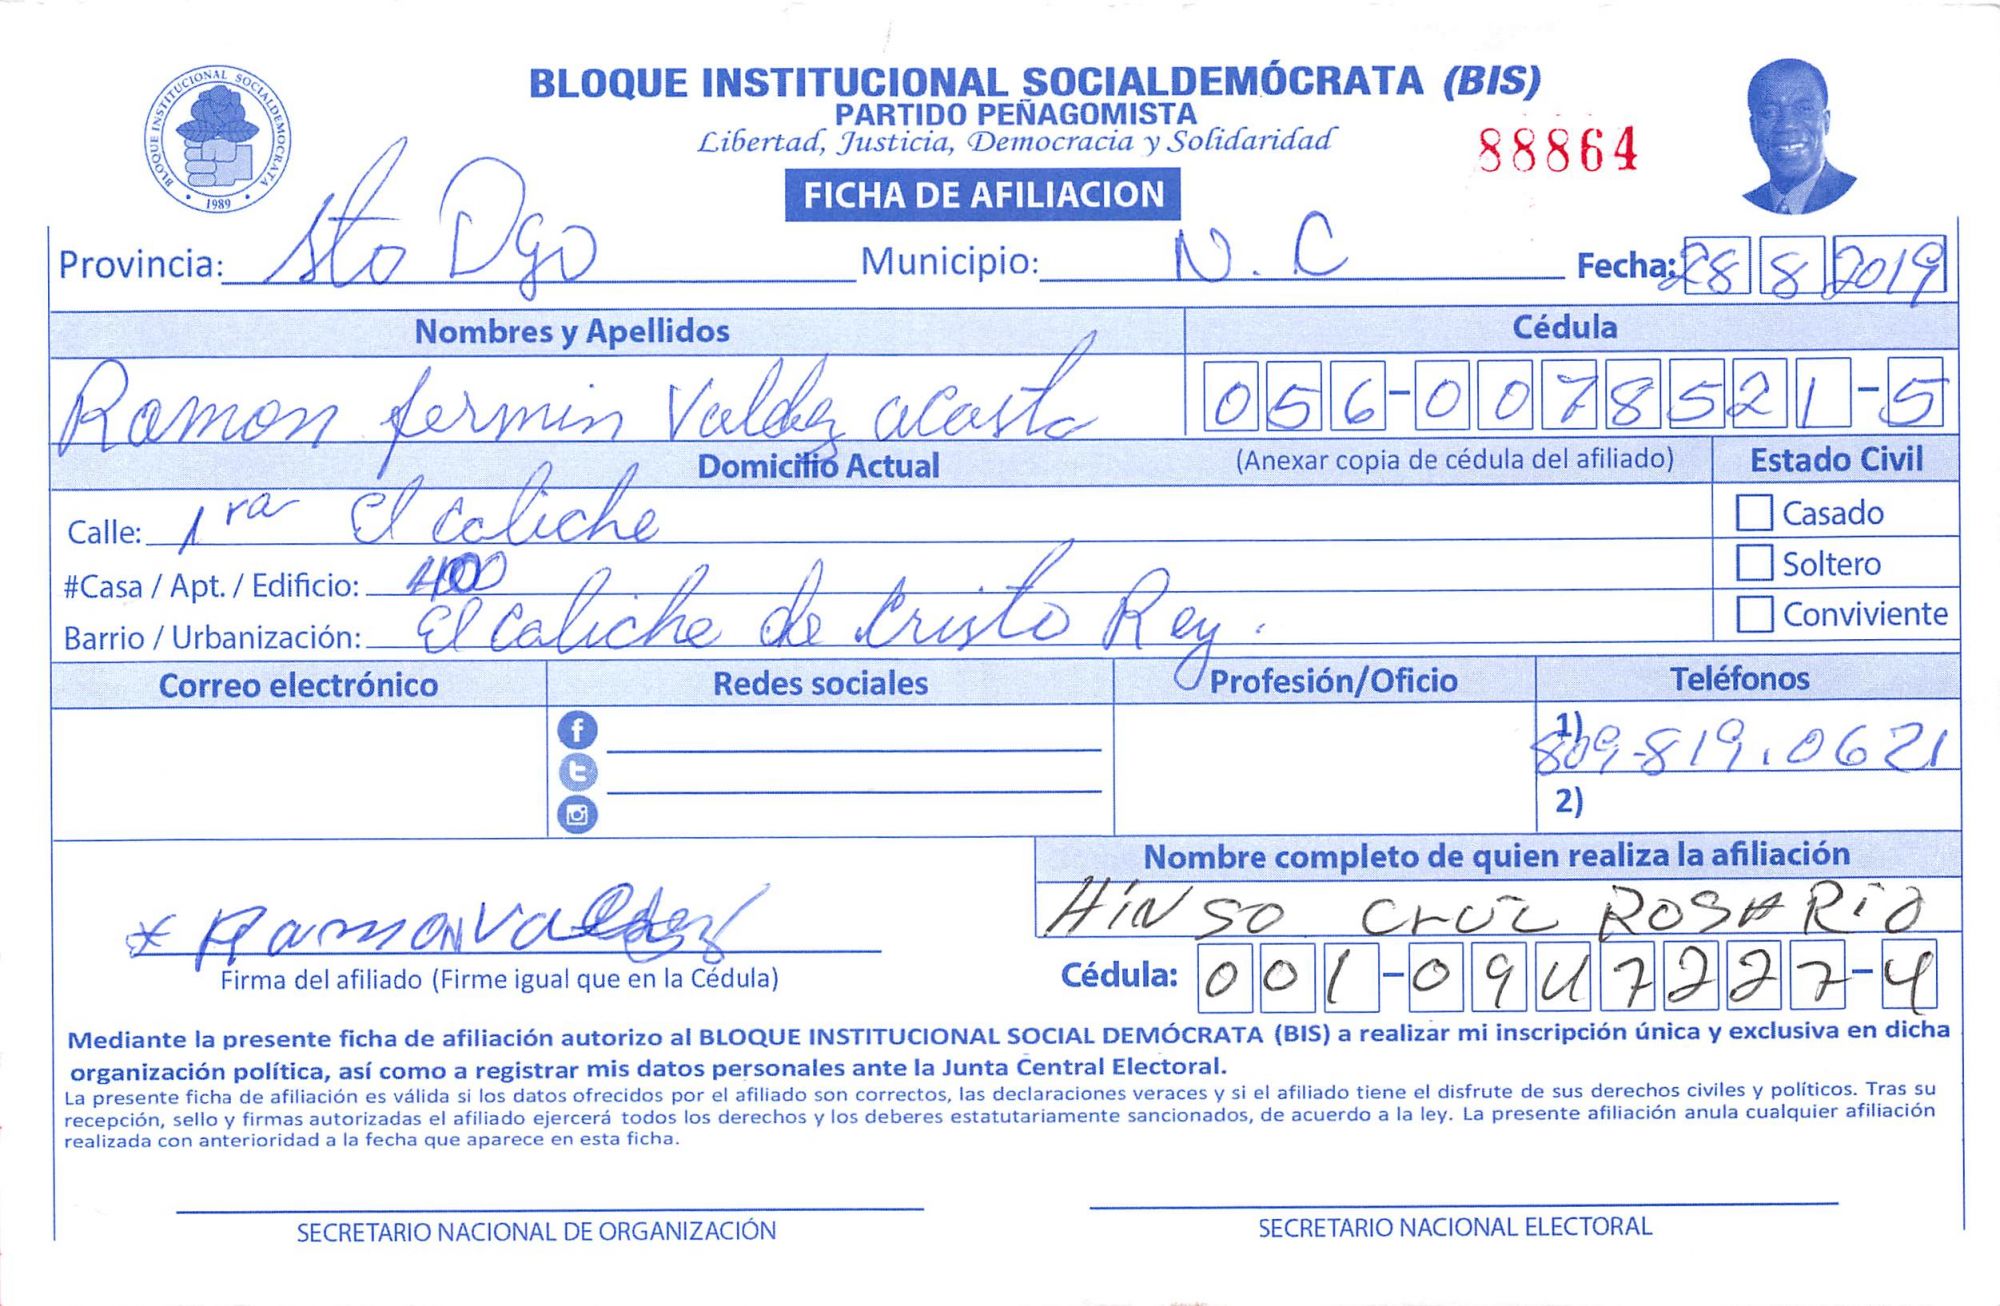 BLOQUE INSTITUCIONAL SOCIALDEMOCRATA
1989
BLOQUE INSTITUCIONAL SOCIALDEMÓCRATA (BIS)
PARTIDO PEÑAGOMISTA
Libertad, Justicia, Democracia y Solidaridad
88864
FICHA DE AFILIACION
Provincia: Sto Dgo Municipio: N.C Fecha: 28 8 2019
Nombres y Apellidos Cédula
Ramon fermin Valdez acosta 056-0078521-5
Domicilio Actual (Anexar copia de cédula del afiliado) Estado Civil
Calle: 1ra El caliche Casado
#Casa / Apt. / Edificio: 400 Soltero
Barrio / Urbanización: El caliche de Cristo Rey. Conviviente
Correo electrónico Redes sociales Profesión/Oficio Teléfonos
1) 809-819.0621
2)
Nombre completo de quien realiza la afiliación
HINSO CrUZ ROSARIO
* Ramon Valdez
Firma del afiliado (Firme igual que en la Cédula) Cédula: 001-0947227-4
Mediante la presente ficha de afiliación autorizo al BLOQUE INSTITUCIONAL SOCIAL DEMÓCRATA (BIS) a realizar mi inscripción única y exclusiva en dicha
organización política, así como a registrar mis datos personales ante la Junta Central Electoral.
La presente ficha de afiliación es válida si los datos ofrecidos por el afiliado son correctos, las declaraciones veraces y si el afiliado tiene el disfrute de sus derechos civiles y políticos. Tras su
recepción, sello y firmas autorizadas el afiliado ejercerá todos los derechos y los deberes estatutariamente sancionados, de acuerdo a la ley. La presente afiliación anula cualquier afiliación
realizada con anterioridad a la fecha que aparece en esta ficha.
SECRETARIO NACIONAL DE ORGANIZACIÓN SECRETARIO NACIONAL ELECTORAL